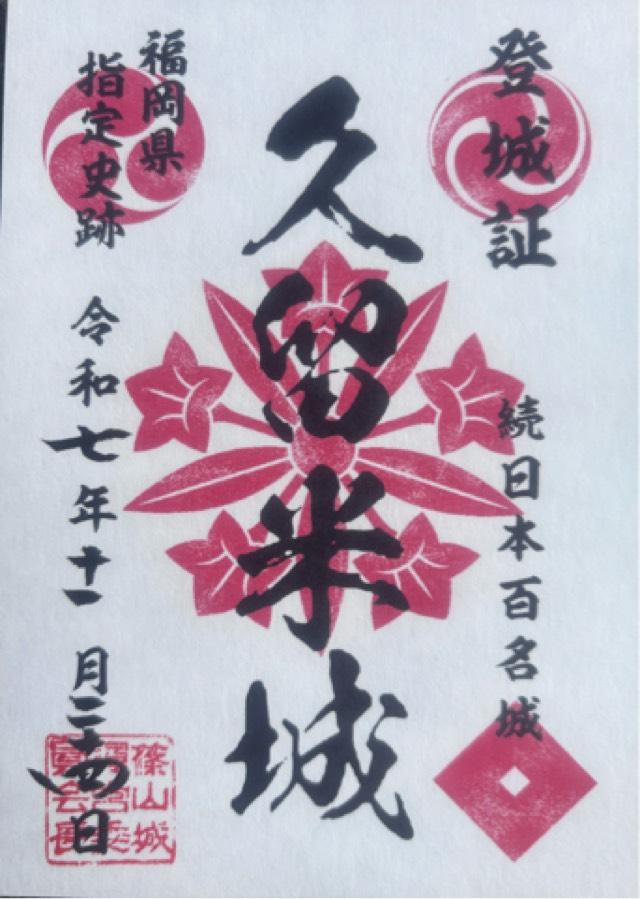 登城証
続日本百名城
久留米城
福岡県
指定史跡
令和七年十一月二十四日
篠山城